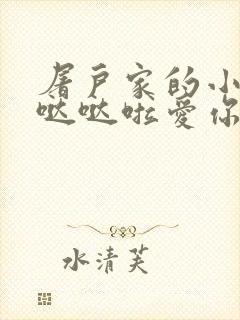 屠户家的小
哒哒啦爱你
水清芙